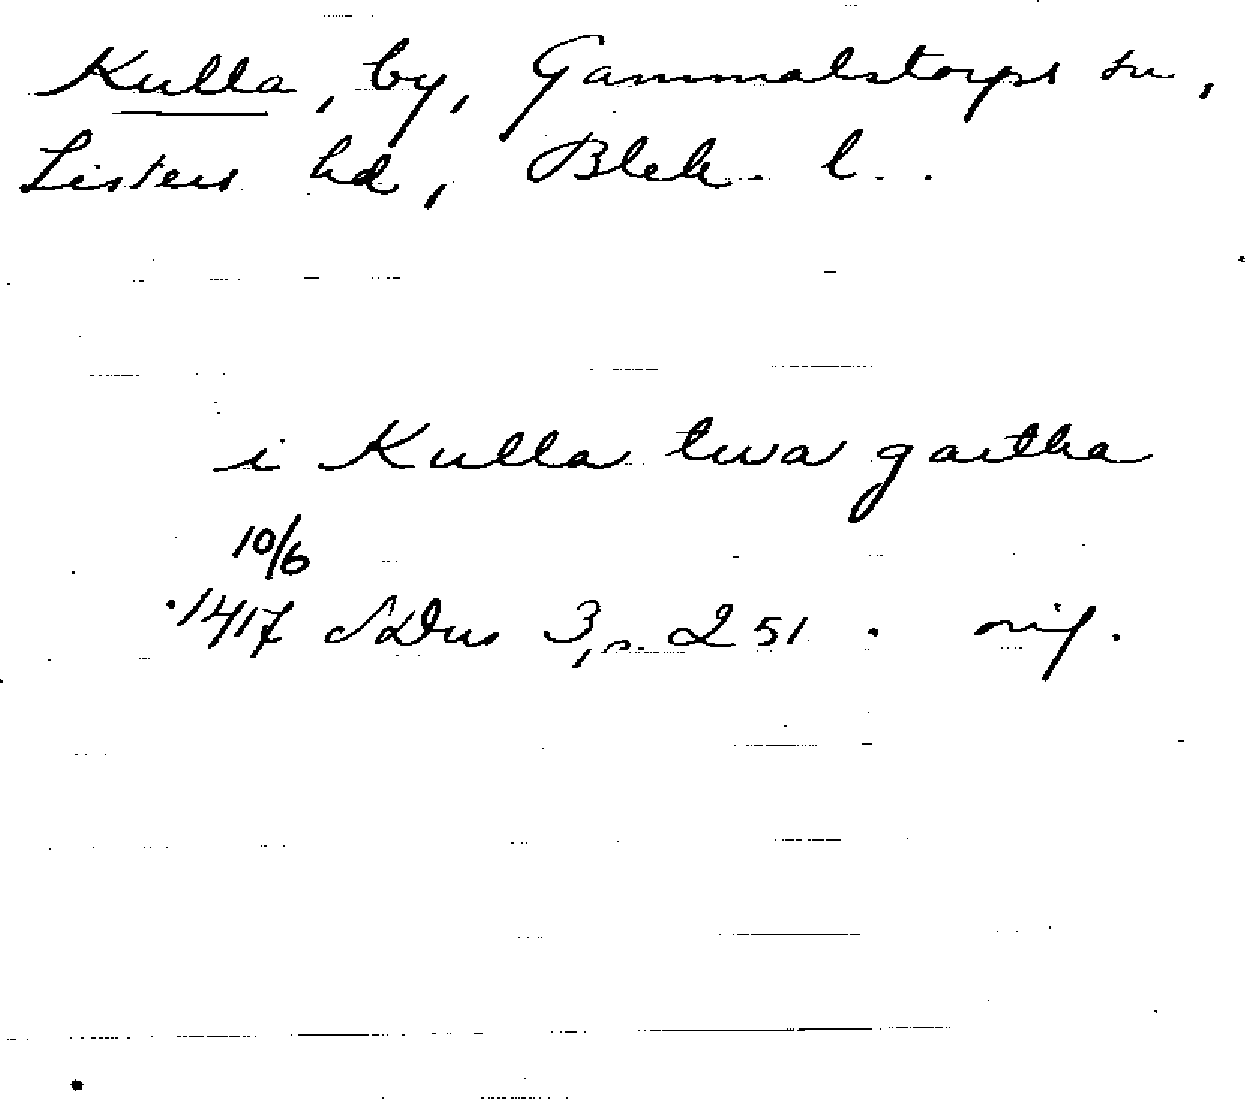 Kulla, by, Gammalstorps sn,
Listers hd, Blek. l.
i Kulla twa gartha
10/6
1417 SDns 3, s. 251. orig.